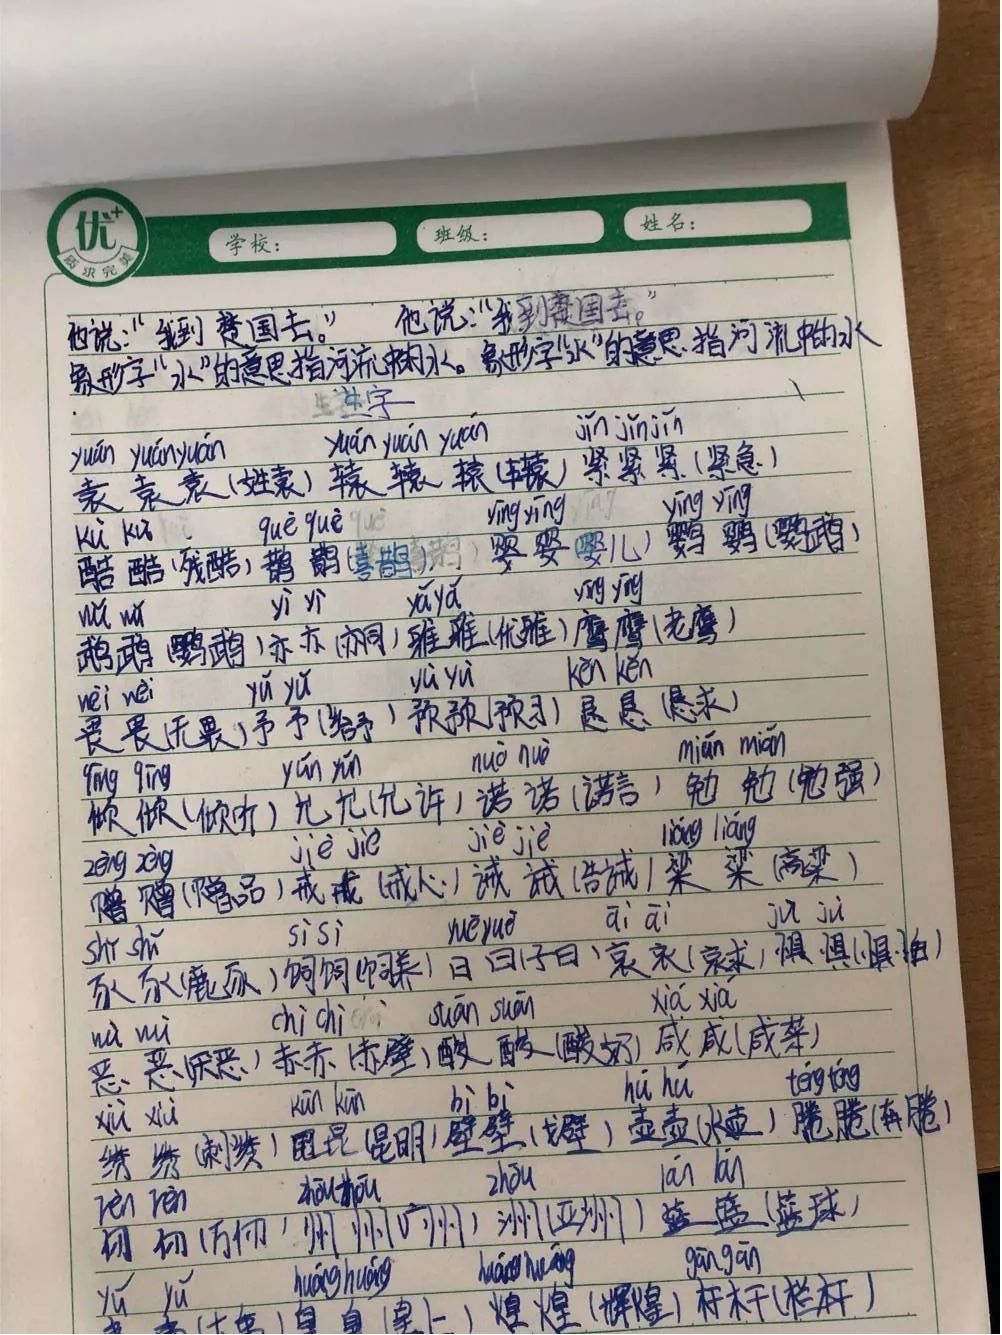 优+
质求完美
学校: 班级: 姓名:
他说:“我到楚国去。” 他说:“我到楚国去。”
象形字“水”的意思指河流中的水。象形字“水”的意思指河流中的水
生字
yuán yuán yuán yuán yuán yuán jǐn jǐn jǐn
袁 袁 袁(姓袁) 辕 辕 辕(车辕) 紧 紧 紧(紧急)
kù kù què què què yīng yīng yīng yīng
酷 酷(残酷) 鹊 鹊(喜鹊) 婴 婴(婴儿) 鹦 鹦(鹦鹉)
yì yì yǎ yǎ yīng yīng
鹉 鹉(鹦鹉) 亦 亦(亦同) 雅 雅(优雅) 鹰 鹰(老鹰)
wèi wèi yǔ yǔ yù yù kěn kěn
畏 畏(无畏) 予 予(给予) 预 预(预习) 恳 恳(恳求)
qīng qīng yǔn yǔn nuò nuò miǎn miǎn
倾 倾(倾听) 允 允(允许) 诺 诺(诺言) 勉 勉(勉强)
zèng zèng jiè jiè jiè jiè liáng liáng
赠 赠(赠品) 戒 戒(戒心) 诫 诫(告诫) 梁 梁(高梁)
shǐ shǐ sì sì yuē yuē āi āi jù jù
豕 豕(鹿豕) 饲 饲(饲养) 曰 曰(子曰) 哀 哀(哀求) 惧 惧(惧怕)
wù wù chì chì suān suān xiá xiá
恶 恶(厌恶) 赤 赤(赤壁) 酸 酸(酸奶) 咸 咸(咸菜)
xiù xiù kūn kūn bì bì hú hú téng téng
绣 绣(刺绣) 昆 昆(昆明) 壁 壁(戈壁) 壶 壶(水壶) 腾 腾(奔腾)
rèn rèn zhōu zhōu zhōu lán lán
仞 仞(万仞) 州 州(广州) 洲(亚洲) 篮 篮(篮球)
yǔ yǔ huáng huáng huáng huáng gān gān
皇 皇(皇上) 煌 煌(辉煌) 杆 杆(栏杆)